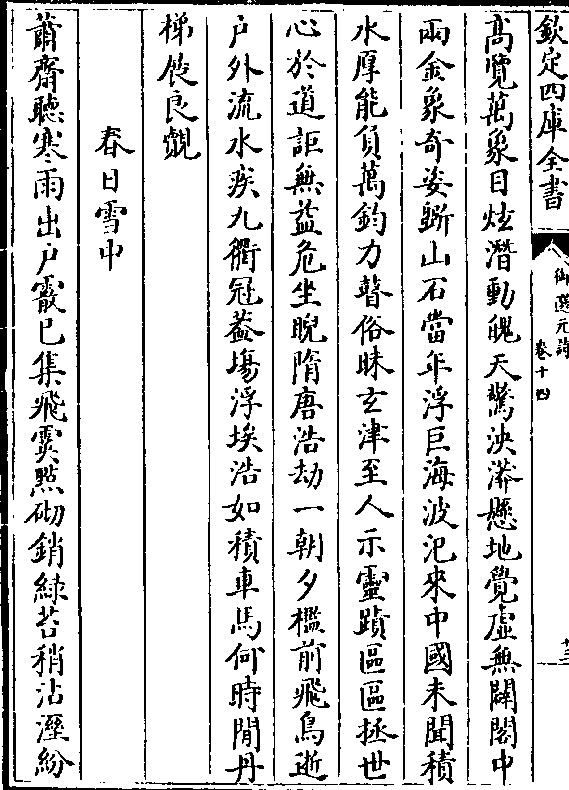 欽定四庫全書
御選元詩
卷十四
十三
高覽萬象目炫潛動魄天驚泱漭懸地覺虛無闢閣中
兩金象奇姿斵山石當年浮巨海波汜來中國未聞積
水厚能負萬鈞力瞽俗昧玄津至人示靈蹟區區拯世
心於道詎無益危坐睨隋唐浩劫一朝夕檻前飛鳥逝
户外流水疾九衢冠葢塲浮埃浩如積車馬何時閒丹
梯餃良覿
春日雪中
蕭齋聽寒雨出户霰已集飛霙點砌銷緑苔稍沾溼紛